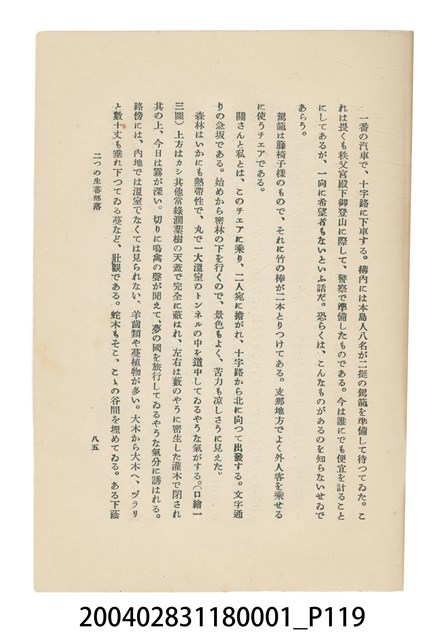 一番の汽車で、十字路に下車する。構內には本島人八名が二挺の駕籠を準備して待つてゐた。こ
れは畏くも秩父宮殿下御登山に際して、警察で準備したものである。今は誰にでも便宜を計ること
にしてあるが、一向に希望者もないといふ話だ。恐らくは、こんなものがあるのを知らないせゐで
あらう。
駕籠は籐椅子樣のもので、それに竹の棒が二本とりつけてある。支那地方でよく外人客を乘せる
に使うチェアである。
關さんと私とは、このチェアに乘り、二人宛に擔がれ、十字路から北に向つて出發する。文字通
りの急坂である。始めから密林の下を行くので、景色もよく、苦力も凉しさうに見えた。
森林はいかにも熱帶性で、丸で一大溫室のトンネルの中を道中してゐるやうな氣がする。(口繪一
三圖)上方はカシ其他常綠濶葉樹の天蓋で完全に蔽はれ、左右は藪のやうに密生した灌木で閉され
其の上、今日は霧が深い。切りに鳴禽の聲が聞えて、夢の國を旅行してゐるやうな氣分に誘はれる。
路傍には、內地では溫室でなくては見られない、羊齒類や蔓植物が多い。大木から大木へ、ヅラリ
と數十丈も垂れ下つてゐる蔓など、壯觀である。蛇木もそこ、こゝの谷間を埋めてゐる。ある下蔭
二つの生蕃部落
八五
200402831180001_P119